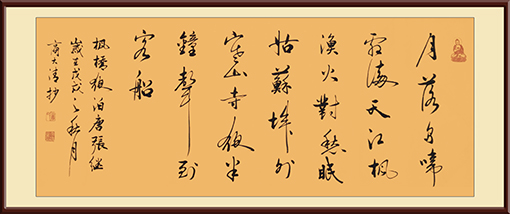 月落烏啼
霜滿天江楓
漁火對愁眠
姑蘇城外
寒山寺夜半
鐘聲到
客船
楓橋夜泊唐張繼
歲戊戌之秋月
抄